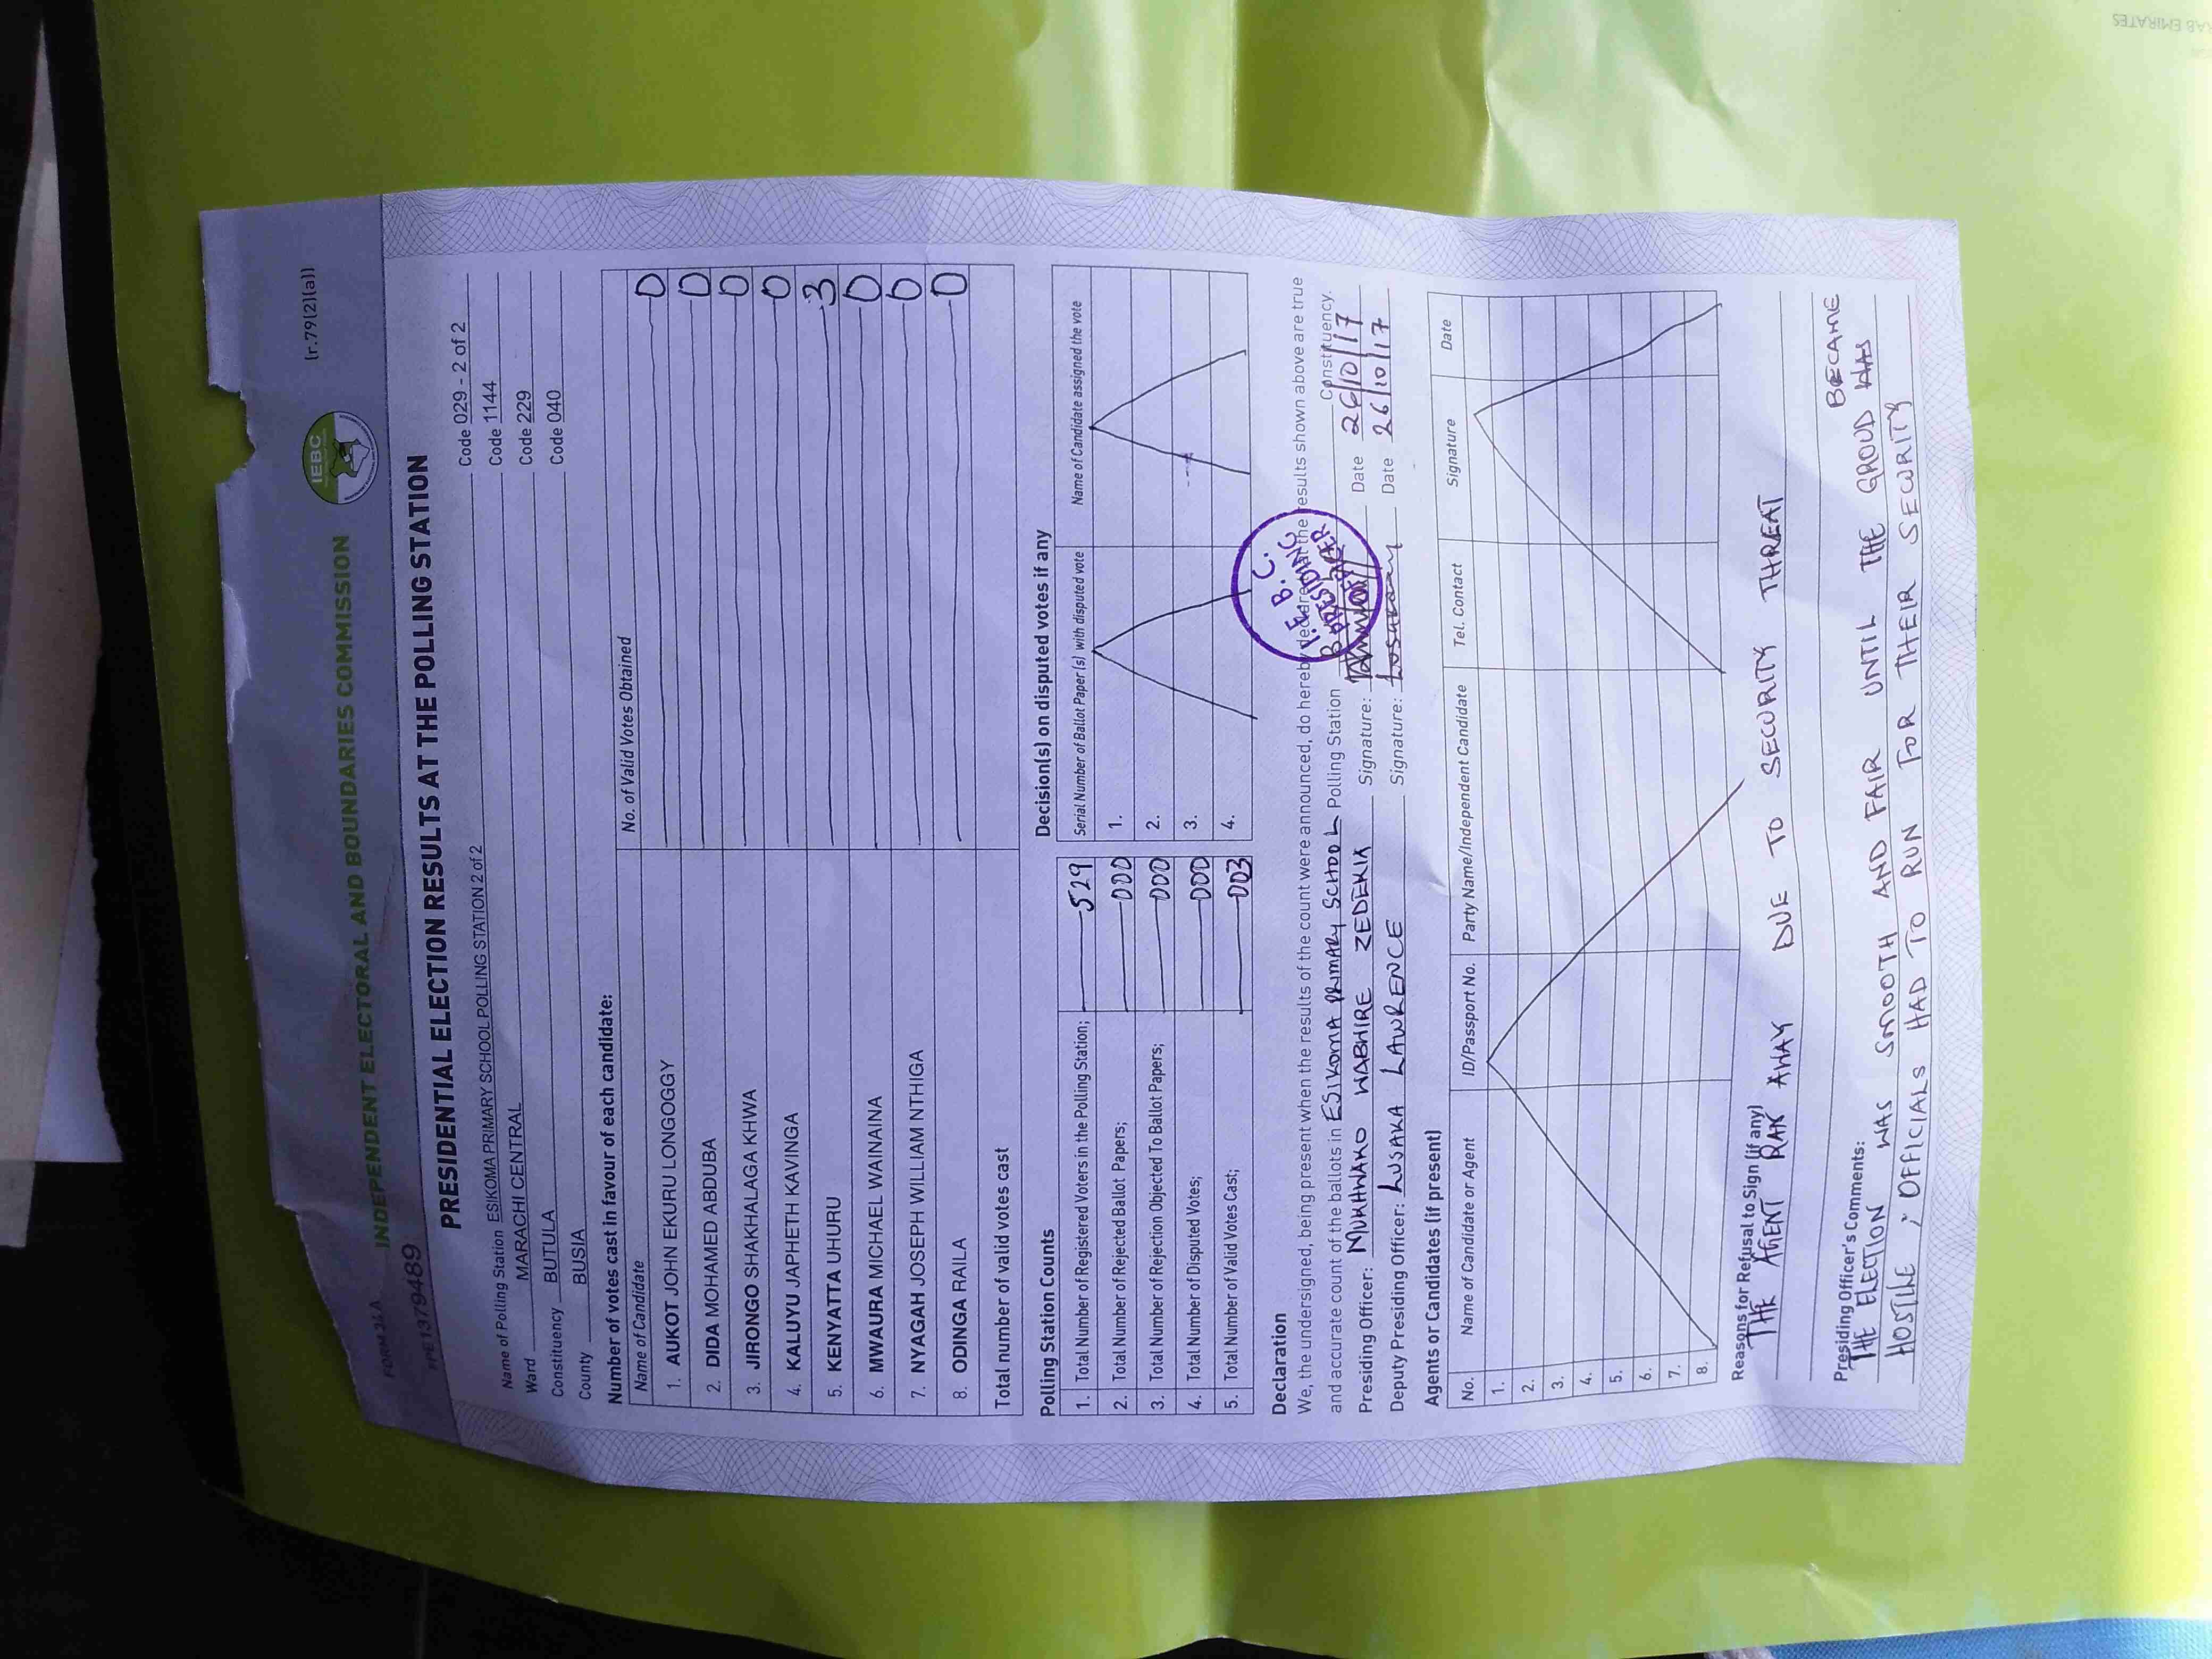 FORM 34A
(r.79(2)(a))
INDEPENDENT ELECTORAL AND BOUNDARIES COMMISSION
IEBC
PRESIDENTIAL ELECTION RESULTS AT THE POLLING STATION
Name of Polling Station ESIKOMA PRIMARY SCHOOL POLLING STATION 2 of 2 Code 029 - 2 of 2
Ward MARACHI CENTRAL Code 1144
Constituency BUTULA Code 229
County BUSIA Code 040
Number of votes cast in favour of each candidate:
Name of Candidate No. of Valid Votes Obtained
1. AUKOT JOHN EKURU LONGOGGY 0
2. DIDA MOHAMED ABDUBA 0
3. JIRONGO SHAKHALAGA KHWA 0
4. KALUYU JAPHETH KAVINGA 0
5. KENYATTA UHURU 3
6. MWAURA MICHAEL WAINAINA 0
7. NYAGAH JOSEPH WILLIAM NTHIGA 0
8. ODINGA RAILA 0
Total number of valid votes cast
Polling Station Counts
1. Total Number of Registered Voters in the Polling Station; 529
2. Total Number of Rejected Ballot Papers; 000
3. Total Number of Rejection Objected To Ballot Papers; 000
4. Total Number of Disputed Votes; 000
5. Total Number of Valid Votes Cast; 003
Decision(s) on disputed votes if any
Serial Number of Ballot Paper (s) with disputed vote Name of Candidate assigned the vote
1.
2.
3.
4.
Declaration
We, the undersigned, being present when the results of the count were announced, do hereby declare that the results shown above are true
and accurate count of the ballots in ESIKOMA PRIMARY SCHOOL Polling Station Constituency.
Presiding Officer: MUKHWAKO WABHIRE ZEDEKIA Signature: Date 26/10/17
Deputy Presiding Officer: LUSAKA LAWRENCE Signature: Date 26/10/17
I.E.B.C.
PRESIDING
OFFICER
Agents or Candidates (if present)
No. Name of Candidate or Agent ID/Passport No. Party Name/Independent Candidate Tel. Contact Signature Date
1.
2.
3.
4.
5.
6.
7.
8.
Reasons for Refusal to Sign (if any)
THE AGENT RAN AWAY DUE TO SECURITY THREAT
Presiding Officer's Comments:
BECAME
THE ELECTION WAS SMOOTH AND FAIR UNTIL THE GROUD WAS
HOSTILE ; OFFICIALS HAD TO RUN FOR THEIR SECURITY